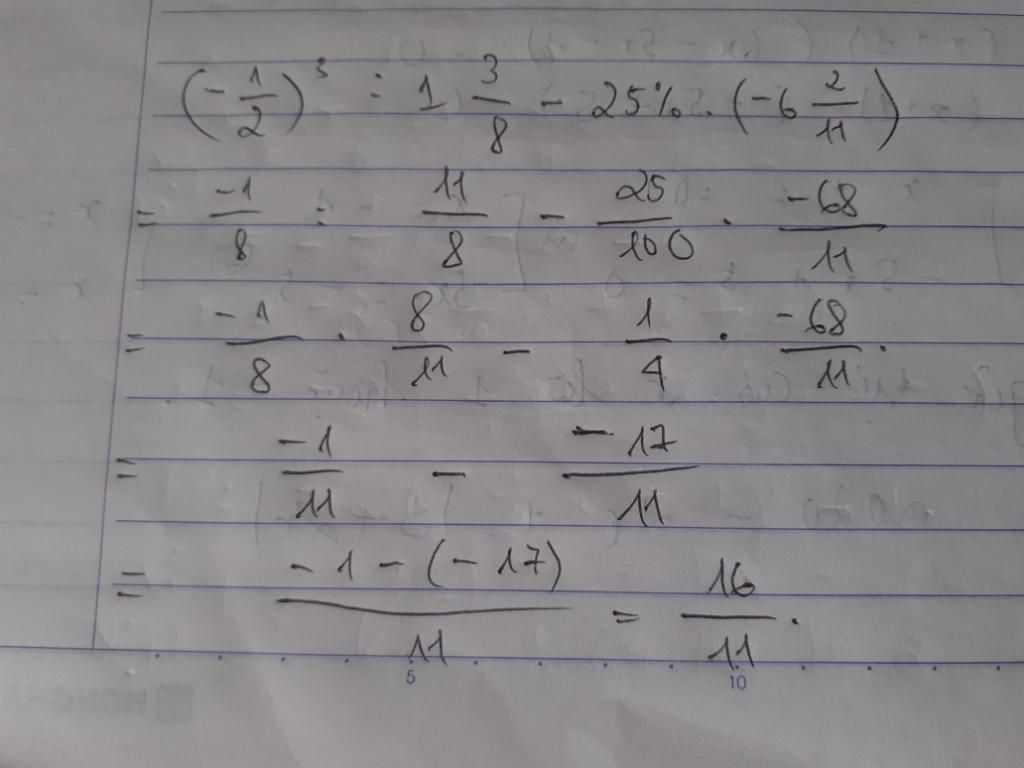 (-1/2)³ : 1 3/8 - 25% . (-6 2/11)
= -1/8 : 11/8 - 25/100 . -68/11
= -1/8 . 8/11 - 1/4 . -68/11 .
= -1/11 - -17/11
= -1-(-17)/11 = 16/11 .
5 10